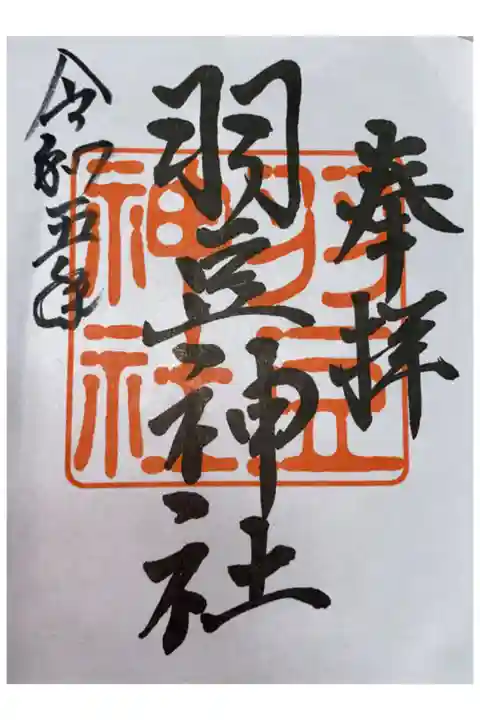 奉拝
羽豆神社
令和五年
羽豆神社